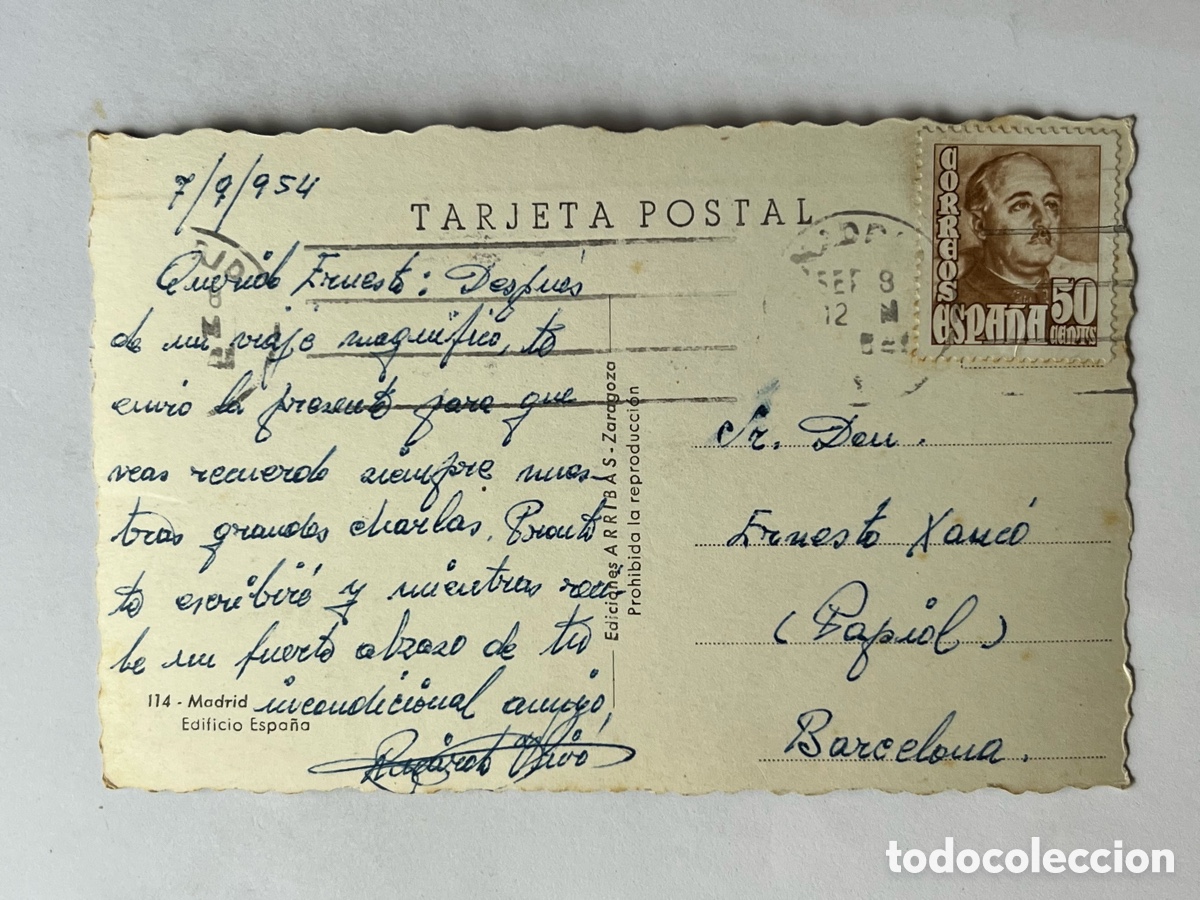 7/9/954
TARJETA POSTAL
Querido Ernesto: Después
de un viaje magnífico, te
envio la presente para que
veas recuerdo siempre nues-
tras grandes charlas. Pronto
te escribiré y mientras reci-
be un fuerte abrazo de tu
incondicional amigo,
Ricardo
114 - Madrid
Edificio España
Ediciones ARRIBAS - Zaragoza
Prohibida la reproducción
CORREOS
ESPAÑA
50
CENTS
SEP 8
12
Sr. Don.
Ernesto Xancó
(Papiol)
Barcelona.
todocoleccion